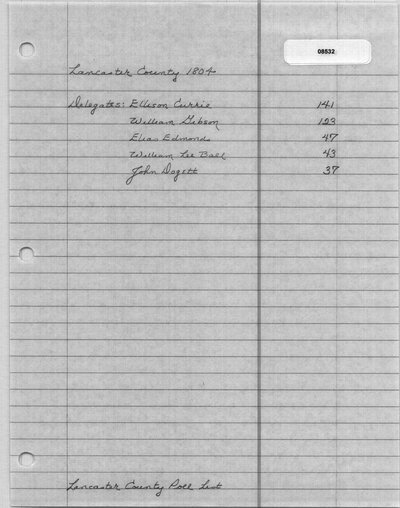 08532
Lancaster County 1804
Delegates: Ellison Currie 141
William Gibson 123
Elias Edmonds 47
William Lee Ball 43
John Dogett 37
Lancaster County Poll List